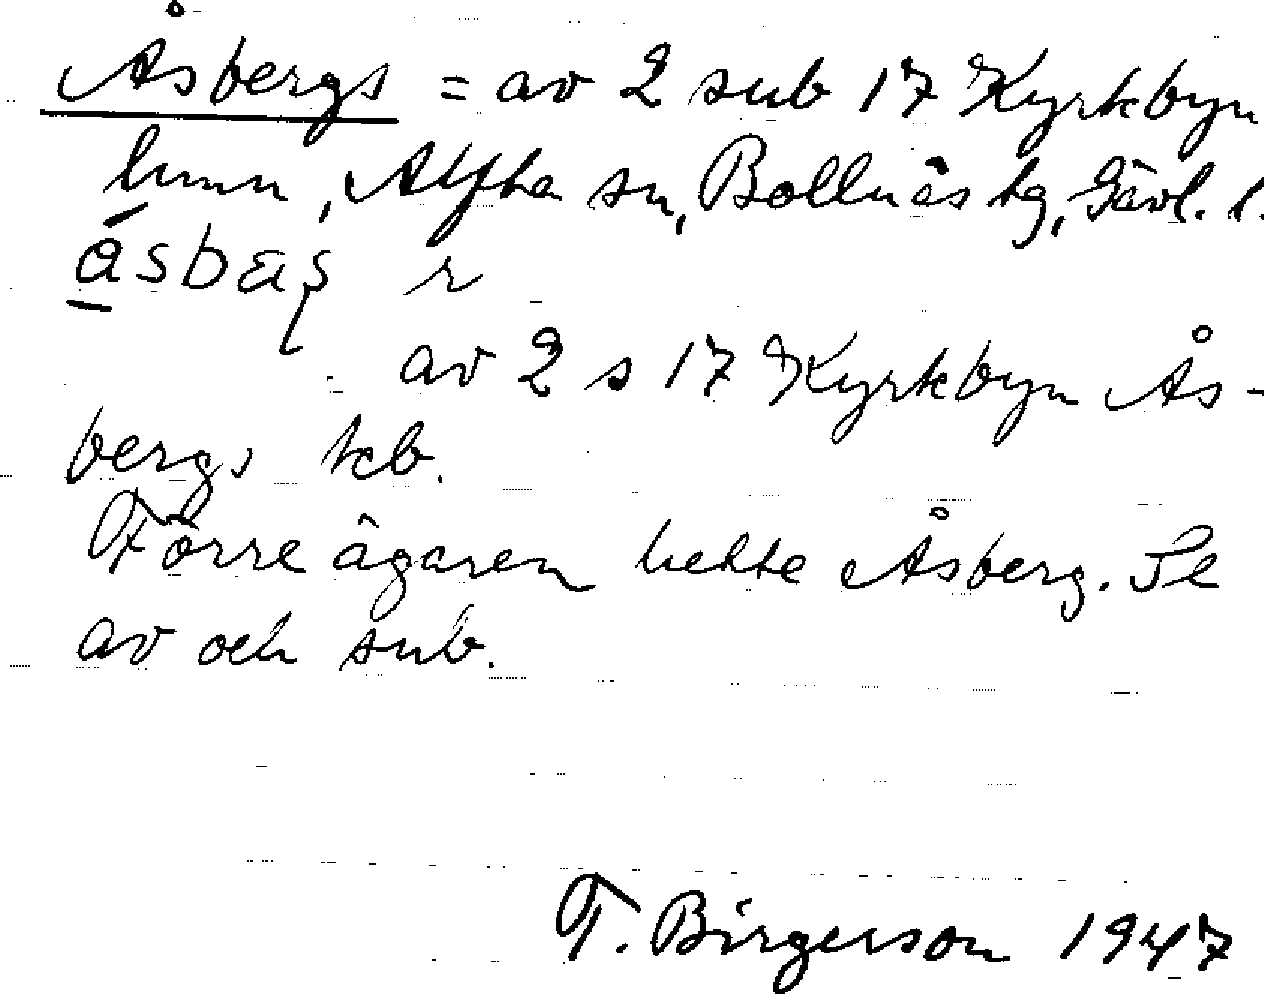 Åsbergs = av 2 sub 17 Kyrkbyn
hmn, Alfta sn, Bollnäs tg, Gävl. l.
åsbaʂ r
av 2 s 17 Kyrkbyn Ås-
bergs kb.
Förre ägaren hette Åsberg. Se
av och sub.
T. Birgerson 1947